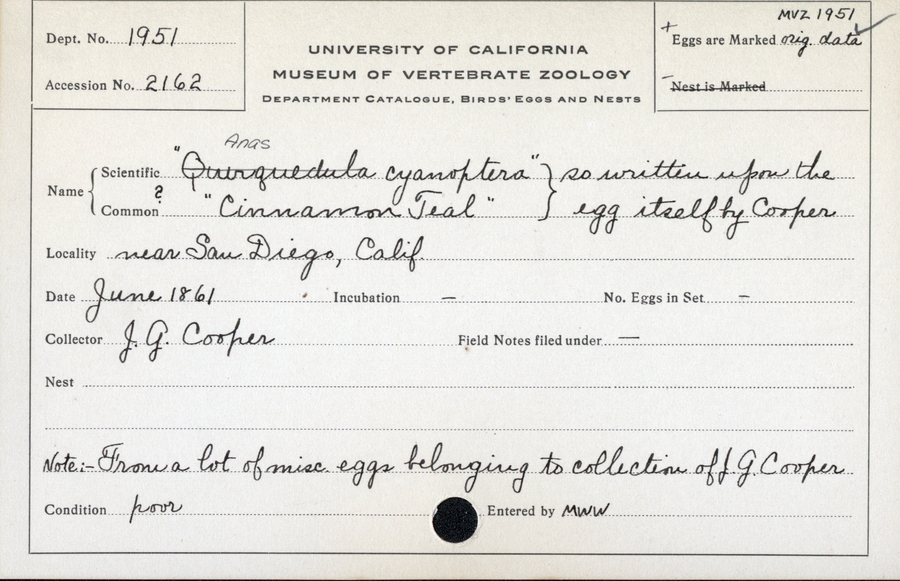 MVZ 1951
Dept. No. 1951
+ Eggs are Marked orig. data ✓
UNIVERSITY OF CALIFORNIA
MUSEUM OF VERTEBRATE ZOOLOGY
DEPARTMENT CATALOGUE, BIRDS' EGGS AND NESTS
Accession No. 2162
– Nest is Marked
Anas
Name { Scientific "Querquedula cyanoptera" } so written upon the
? Common "Cinnamon Teal" } egg itself by Cooper
Locality near San Diego, Calif.
Date June 1861 Incubation — No. Eggs in Set –
Collector J. G. Cooper Field Notes filed under —
Nest
Note:- From a lot of misc. eggs belonging to collection of J. G. Cooper
Condition poor Entered by MWW